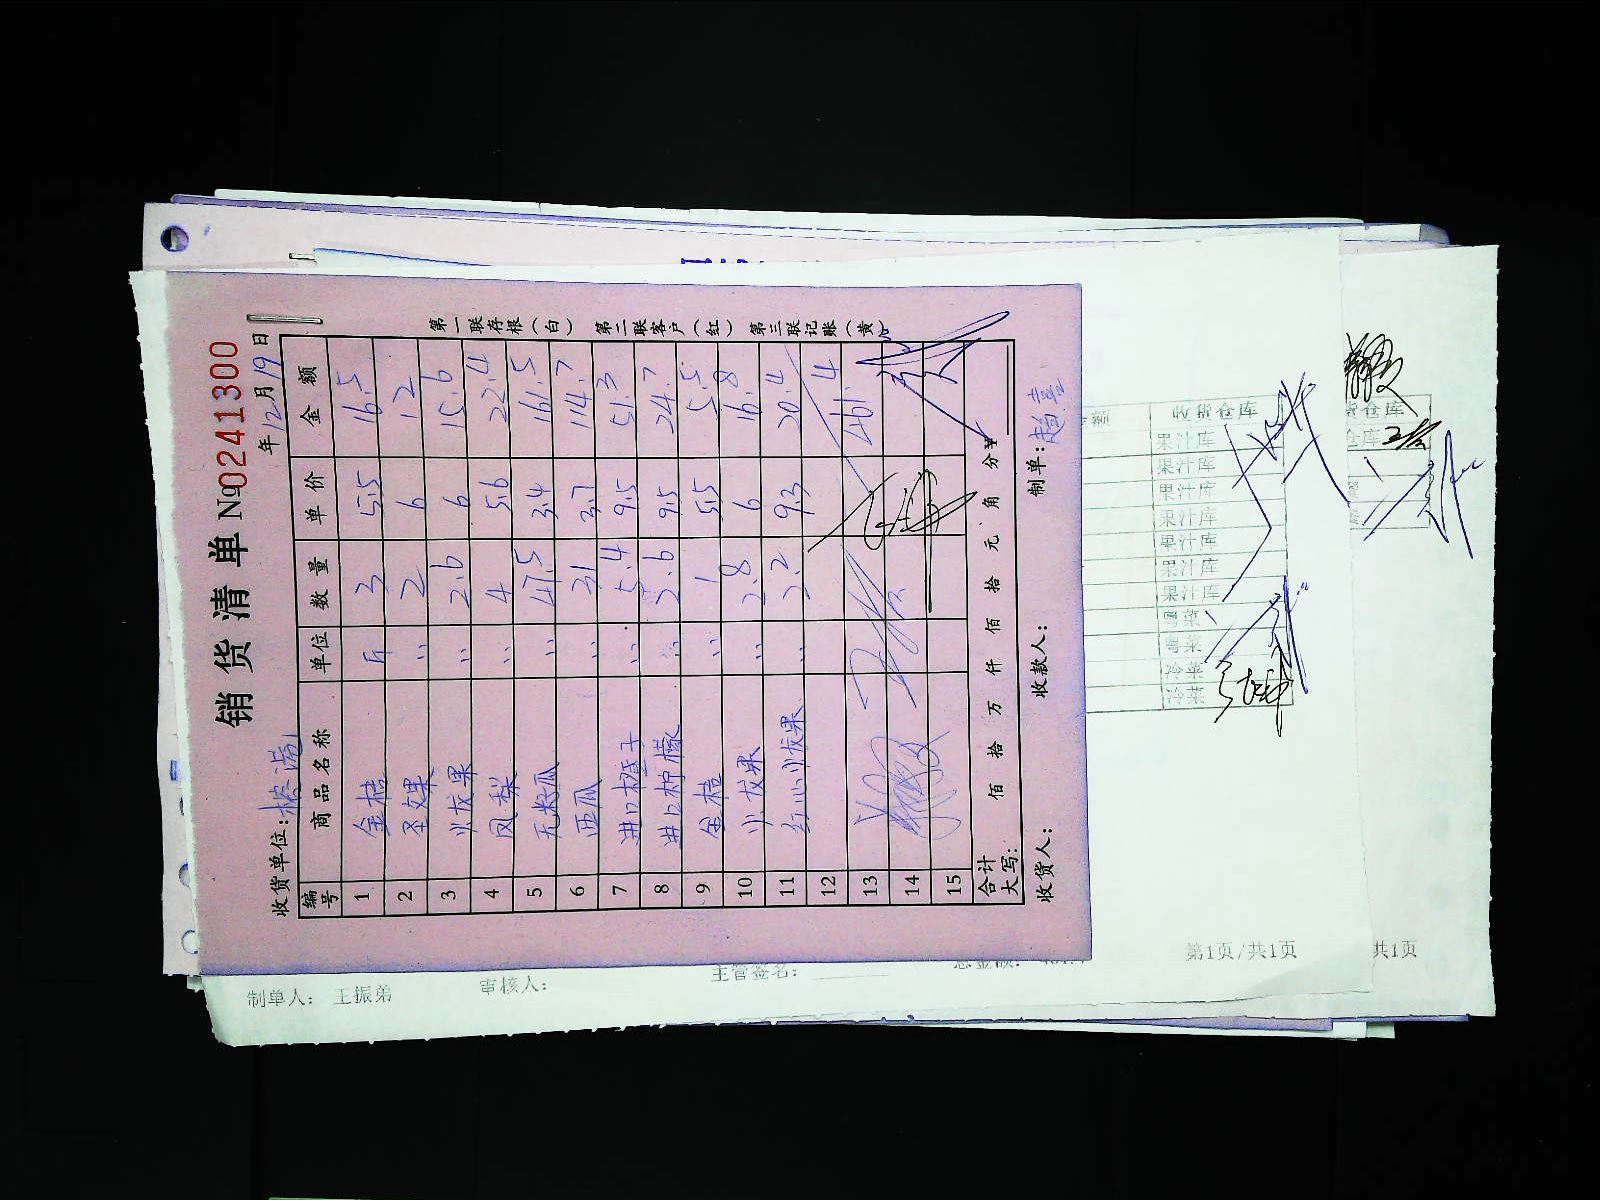 销货清单 №0241300
收货单位: 年12月19日
编号 商品名称 单位 数量 单价 金额
1 金桔 斤 3 5.5 16.5
2 圣女果 〃 2 6 12
3 火龙果 〃 2.6 6 15.6
4 凤梨 〃 4 5.6 22.4
5 无籽瓜 〃 47.5 3.4 161.5
6 西瓜 〃 31 3.7 114.7
7 进口橙子 〃 5.4 9.5 51.3
8 进口柠檬 〃 2.6 9.5 24.7
9 金桔 〃 1 5.5 5.5
10 火龙果 〃 2.8 6 16.8
11 红心火龙果 〃 2.2 9.3 20.4
12
13 461.4
14
15
合计大写: 佰 拾 万 仟 佰 拾 元 角 分 ¥
收货人: 收款人: 制单:
第一联存根(白) 第二联客户(红) 第三联记账(黄)
收货仓库
果汁库
果汁库
果汁库
果汁库
果汁库
果汁库
果汁库
粤菜
粤菜
冷菜
冷菜
制单人: 王振弟 审核人: 主管签名:
第1页/共1页
共1页